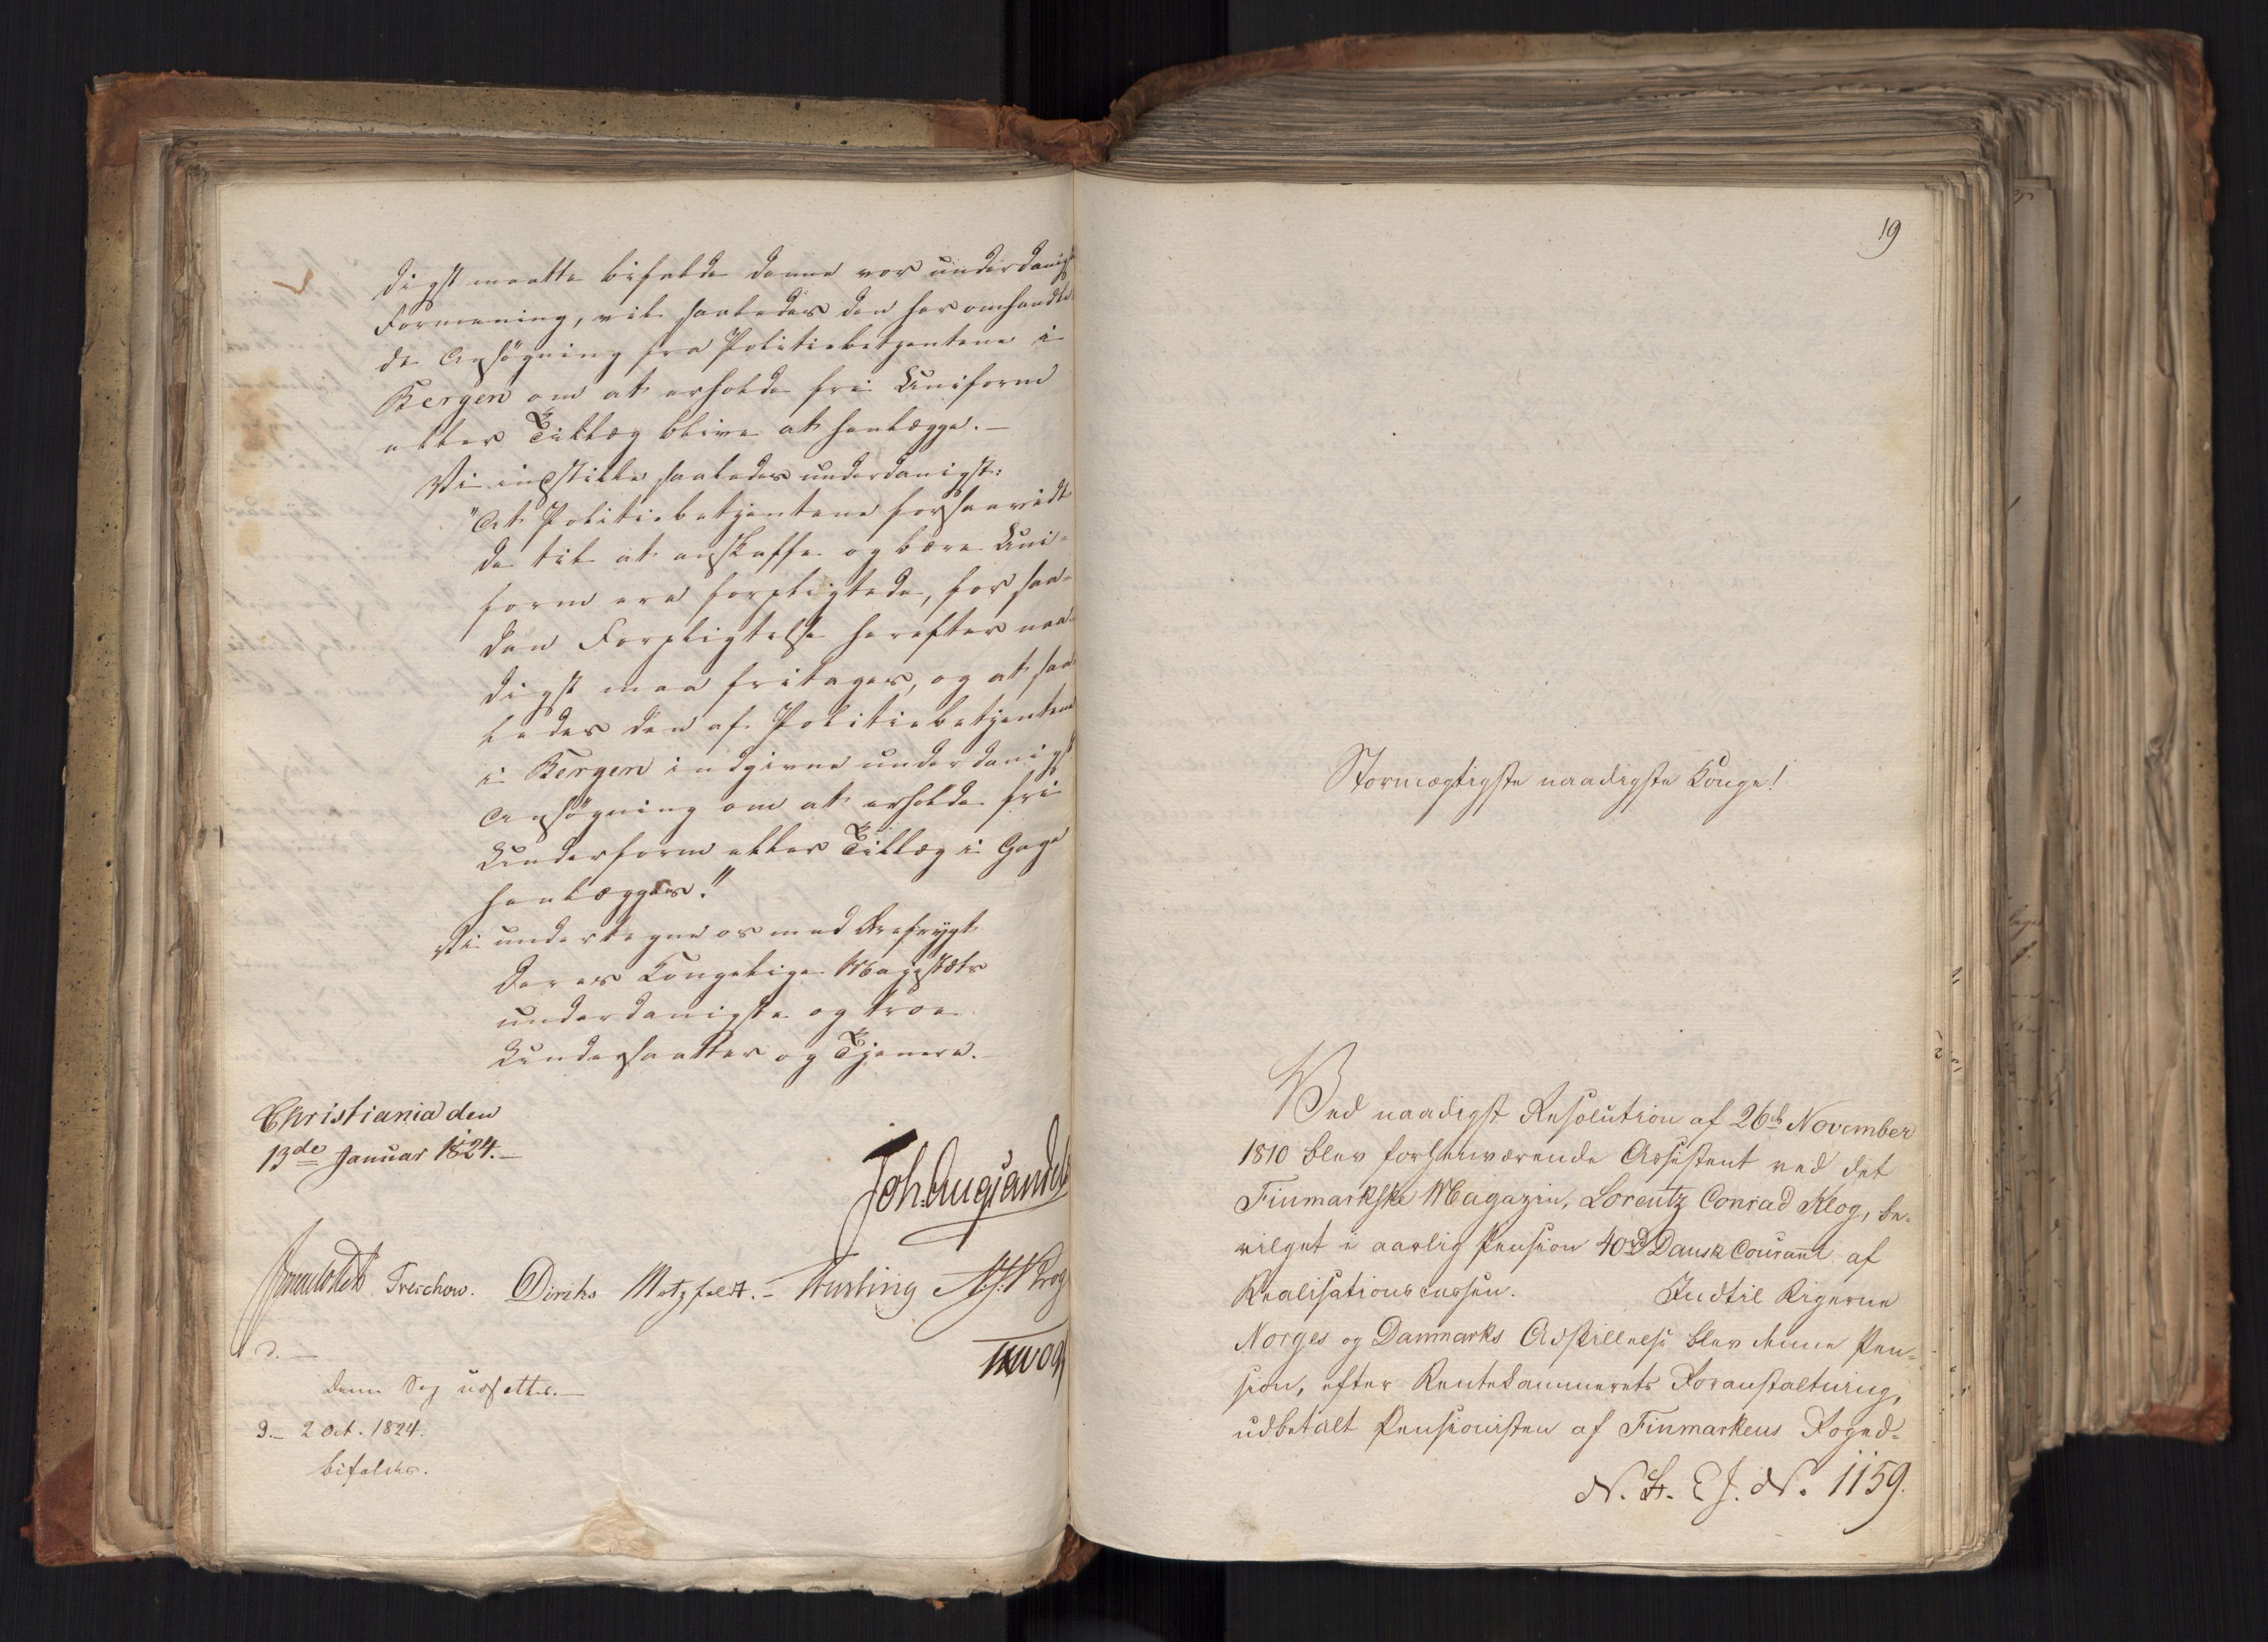 digst maatte bifalde denne vor underdanigst
Formening, vil saaledes den her omhandle
de Ansøgning fra Politiebetjentene i
Bergen om at erholde fri Uniform
eller Tillæg blive at henlægge. —
Vi indstille saaledes underdanigst:
"At Politiebetjentene forsaavidt
de til at anskaffe og bære Uni=
form ere forpligtede, for saa=
dan Forpligtelse herefter naa=
digst maa fritages, og at saa
ledes den af Politiebetjentene
i Bergen indgivne underdanigst
Ansøgning om at erholde fri
Underform eller Tillæg i Gage
henlægges."
Vi undertegne os med Ærefrygt
Deres Kongelige Majestæts
underdanigste og troe
Undersaatter og Tjenere. —
Christiania den
13de Januar 1824. —
Joh. Aug. Sandels
Treschow. Diriks Motzfeldt. — Krog
d. —
denne Sag udsettes. —
d. — 2 Oct. 1824.
bifaldes.
19
Stormægtigste naadigste Konge!
Ved naadigst Resolution af 26de November
1810 blev forhenværende Assistent ved det
Finmarkske Magazin, Lorentz Conrad Klog, be=
vilget i aarlig Pension 40rd Dansk Courant af
Realisationscassen. Indtil Rigerne
Norges og Danmarks Adskillelse blev denne Pen=
sion, efter Rentekammerets Foranstaltning,
udbetalt Pensionisten af Finmarkens Foged=
N. 1159.